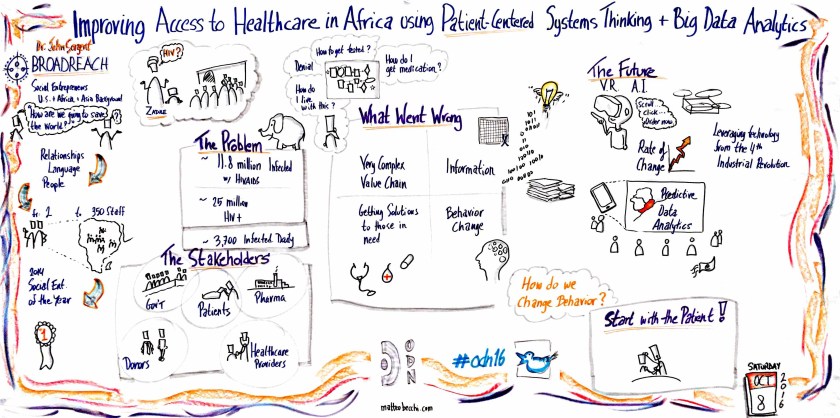 Improving Access to Healthcare in Africa using Patient-Centered Systems Thinking + Big Data Analytics
Dr. John Sargent
BROADREACH
Social Entrepreneurs
U.S. + Africa + Asia Background
How are we going to save
the World?
Relationships
Language
People
fr. 2 to 350 Staff
2014
Social Ent.
of the Year
1
HIV?
The Problem
~ 11.8 million Infected
w/ HIV/AIDS
~ 25 million
HIV+
~ 3,700 Infected Daily
The Stakeholders
Gov't
Patients
Pharma
Donors
Healthcare
Providers
How to get tested?
Denial
How do I
get medication?
How do
I live
with this?
What Went Wrong
Very Complex
Value Chain
Information
Getting Solutions
to those in
need
Behavior
Change
The Future
V.R. A.I.
Scroll
Click...
Order now
Rate of
Change
Leveraging technology
from the 4th
Industrial Revolution
Predictive
Data
Analytics
How do we
Change Behavior?
Start with the Patient!
ODN
#odn16
matteobecchi.com
SATURDAY
OCT
8
2016